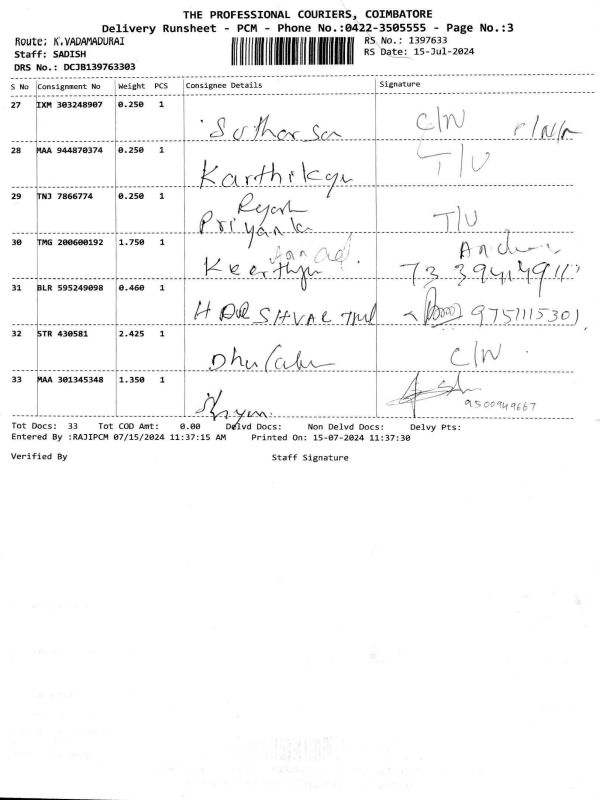 THE PROFESSIONAL COURIERS, COIMBATORE
Delivery Runsheet - PCM - Phone No.:0422-3505555 - Page No.:3
Route: K.VADAMADURAI
RS No.: 1397633
Staff: SADISH
RS Date: 15-Jul-2024
DRS No.: DCJB139763303
S No Consignment No Weight PCS Consignee Details Signature
27 IXM 303248907 0.250 1
Sutharsan C/N
28 MAA 944870374 0.250 1
Karthikeyan T/U
29 TNJ 7866774 0.250 1
Priyanka T/U
30 TMG 200600192 1.750 1
Keerthy
31 BLR 595249098 0.460 1
9751115301
32 STR 430581 2.425 1
C/N
33 MAA 301345348 1.350 1
9500949667
Tot Docs: 33 Tot COD Amt: 0.00 Delvd Docs: Non Delvd Docs: Delvy Pts:
Entered By :RAJIPCM 07/15/2024 11:37:15 AM Printed On: 15-07-2024 11:37:30
Verified By Staff Signature